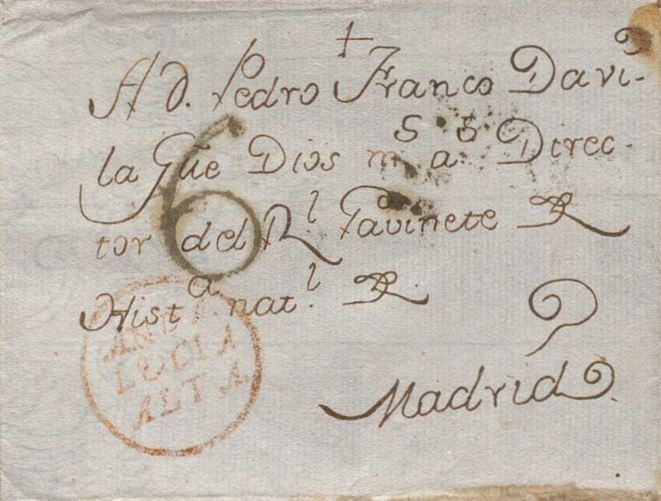 +
A d. Pedro Franco Davi-
la Gũe Dios m.s a.s Direc-
tor del R.l Gavinete
Hist.a nat.l
Madrid
6
ANDA
LOCIA
ALTA